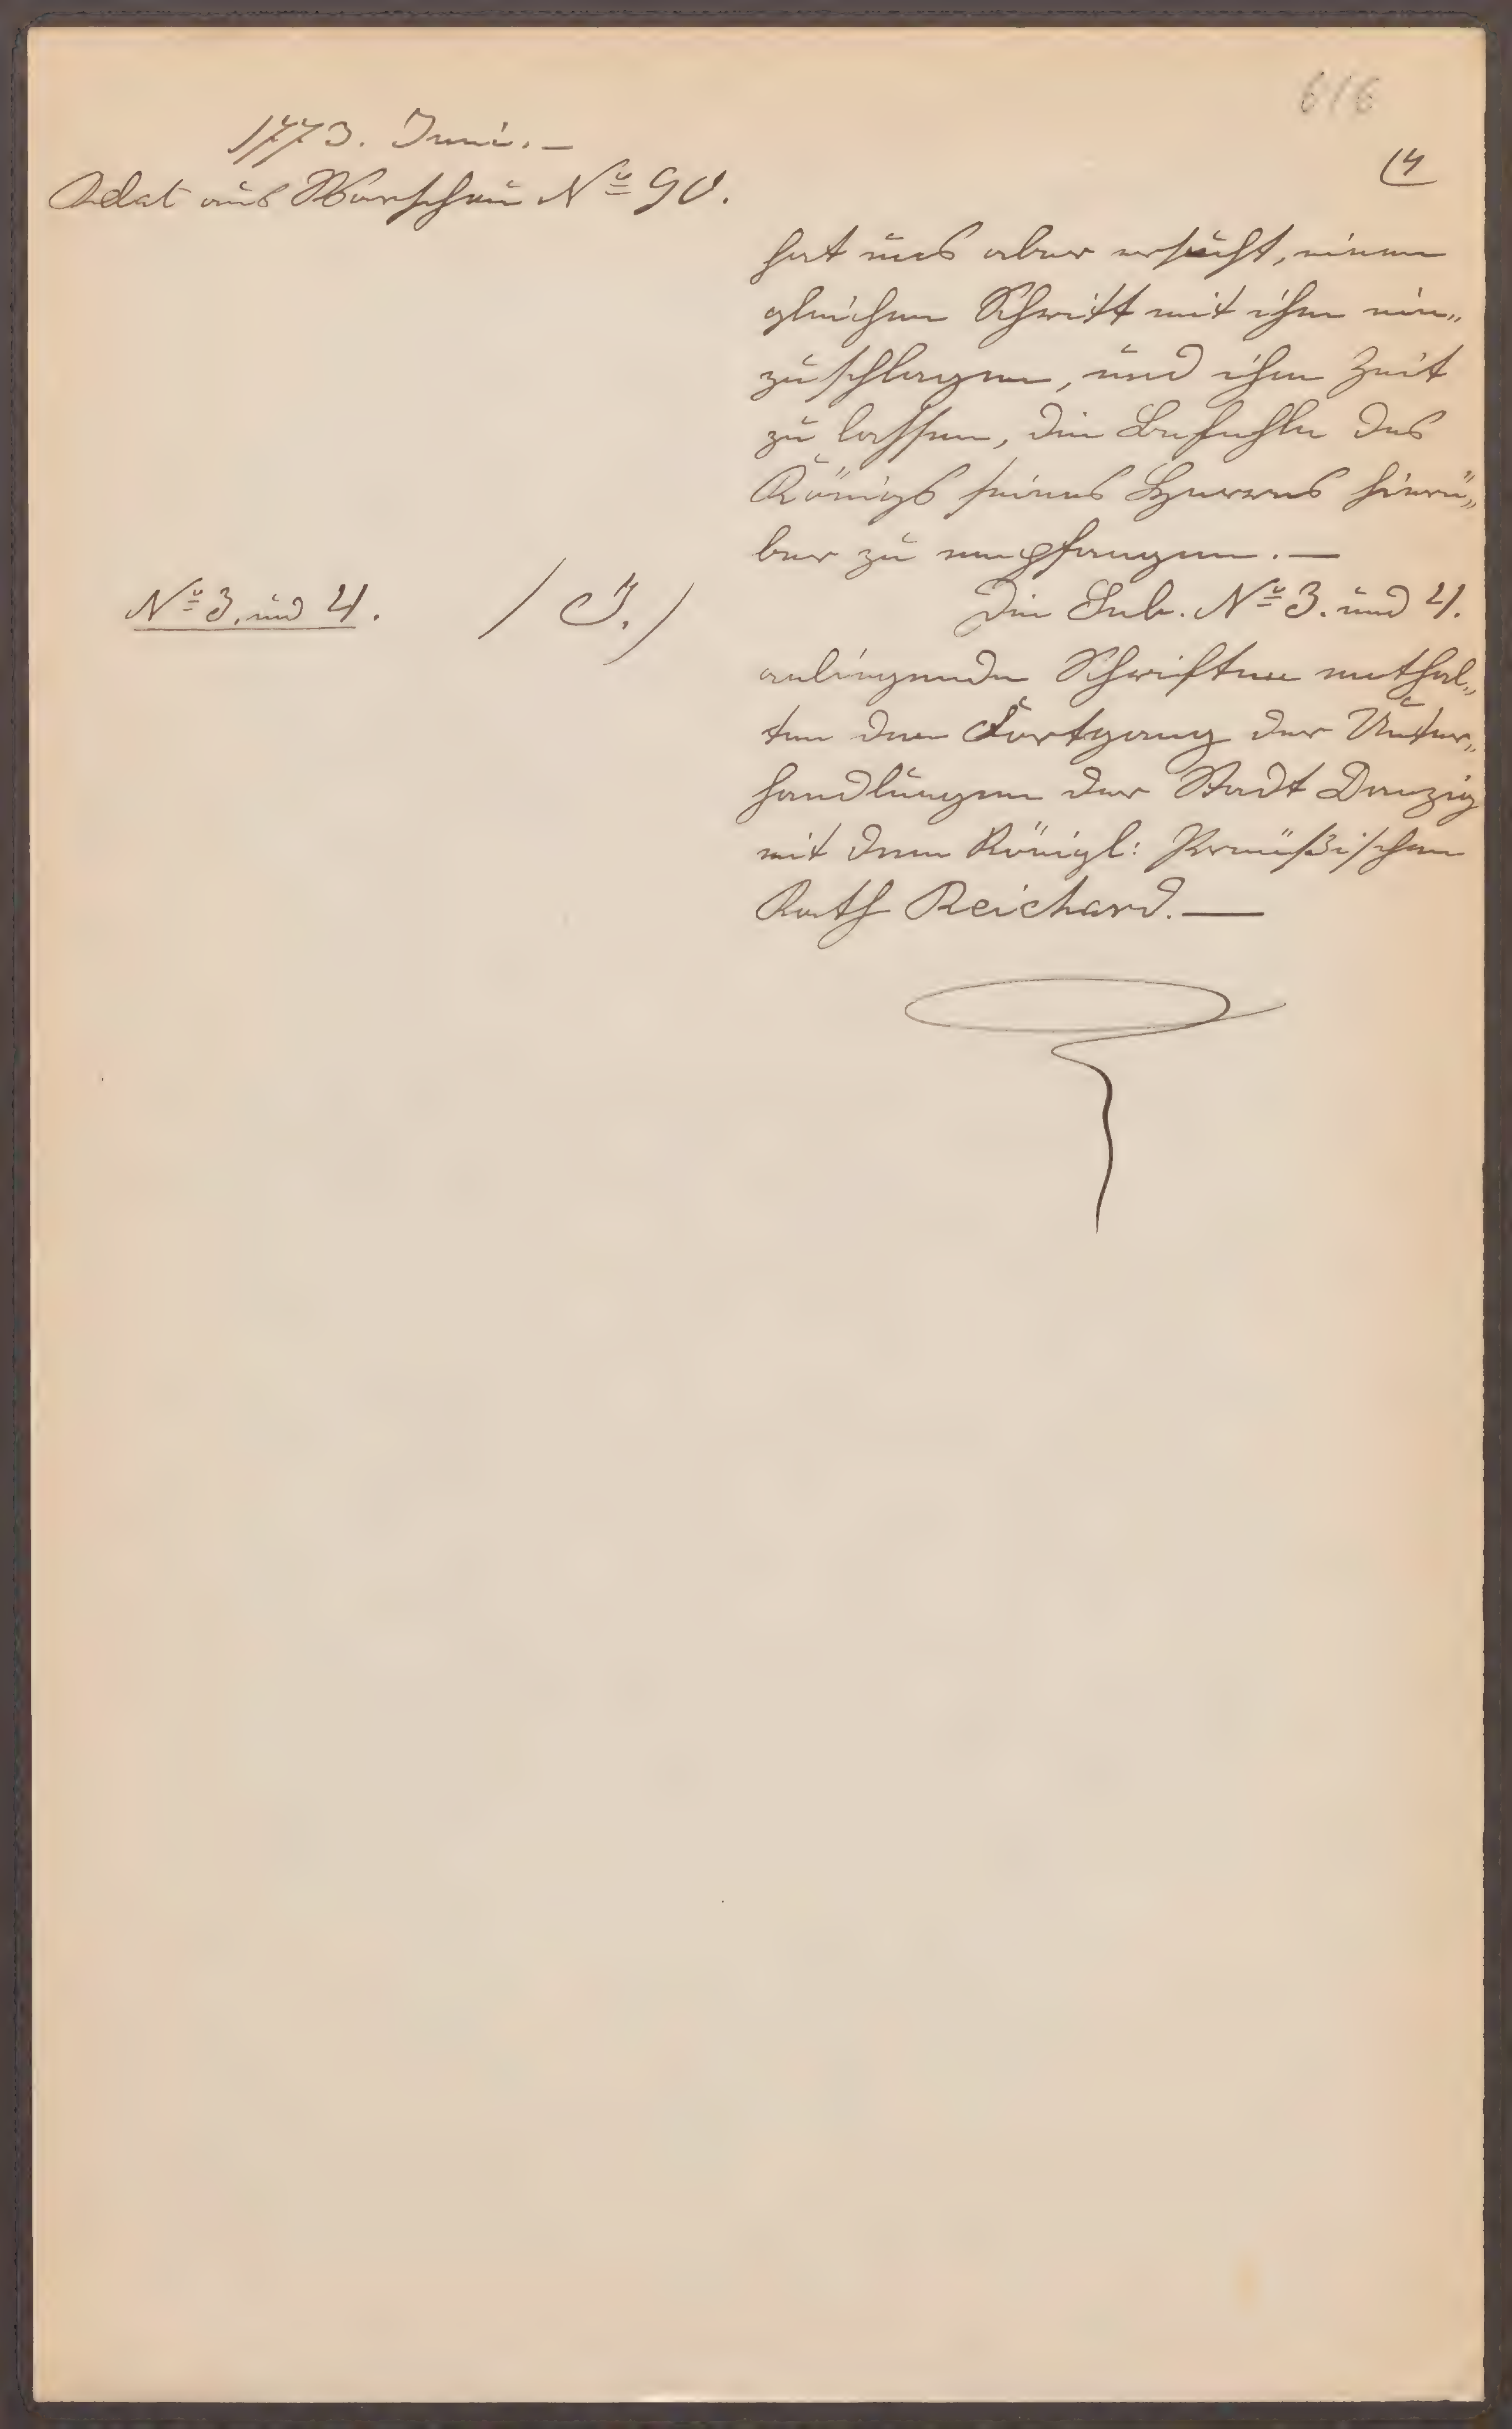 616
1773. Juni. —
Adlat aus Warschau No 90.
(4
hat uns aber ersucht, einen
gleichen Schritt mit ihm ein„
zuschlagen, und ihm Zeit
zu lassen, die Befehle des
Königs seines Herrns hierü„
ber zu empfangen. —
No 3. und 4. / J. /
Die Sub. No 3. und 4.
anliegende Schriften enthal„
ten den Fortgang der Unter„
handlungen der Stadt Danzig
mit dem Königl: Preüßischen
Rath Reichard. —